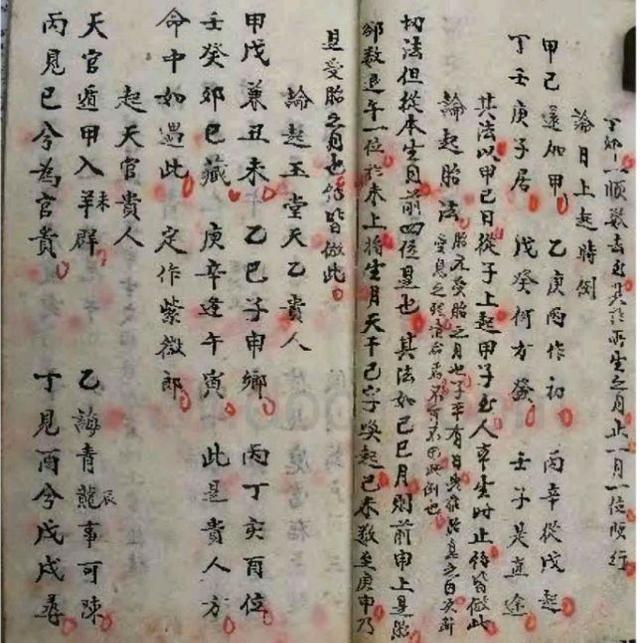 一順數去至其於所生之月止一月一位順行
論日上起時例
甲己還加甲 乙庚丙作初 丙辛從戊起
丁壬庚子居 戊癸何方發 壬子是直途
其法以甲己日從子上起甲子至人家生時止餘皆倣此
論起胎法 胎元受胎之月也子平有曰
受息之 不可不用此例也
切法但從本生月前四位是也 其法如己巳月則前申上是胎
卻數退午一位於未上將生月天干己字喚起己未數至庚申乃
是受胎之月也餘皆倣此
論起玉堂天乙貴人
甲戊兼丑未 乙己子申鄉 丙丁亥酉位
壬癸卯巳藏 庚辛逢午寅 此是貴人方
命中如遇此 定作紫微郎
起天官貴人
天官遁甲入羊未群 乙誨青龍辰事可陳
丙見巳兮為官貴 丁見酉兮戊戌尋